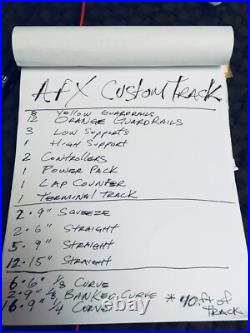 AFX Custom Track
8 Yellow Guardrails
12 Orange Guardrails
3 Low Supports
1 High Support
2 Controllers
1 Power Pack
1 Lap Counter
1 Terminal Track
2 - 9" Squeeze
2 - 6" Straight
5 - 9" Straight
12 - 15" Straight
6 - 6" 1/8 Curve
2 - 9" 1/8 Banked Curve
16 - 9" 1/4 Curve
* 40 ft of Track